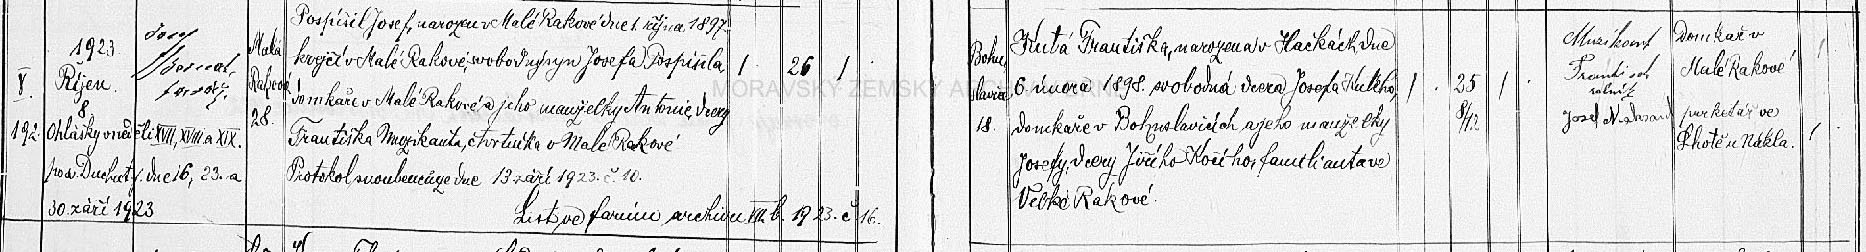 1923
Říjen.
8
X.
192.
Ohlášky v neděli XVII, XVIII. a XIX.
po sv. Duchu t.j. dne 16, 23. a
30. září 1923
Josef
Bernat,
farář.
Malá
Raková
28.
Pospíšil Josef, narozen v Malé Rakové dne 1. října 1897.
krejčí v Malé Rakové, svobodný syn Josefa Pospíšila
domkaře v Malé Rakové a jeho manželky Antonie, dcery
Františka Muzikanta, čtvrtníka v Malé Rakové
Protokol snoubenců ze dne 13 září 1923. č. 10.
List. ve farním archivu VII. b. 1923. č 16.
1
26
1
MORAVSKÝ ZEMSKÝ
Bohu
slavice
18.
Kubá Františka, narozena v Hačkách dne
6. února 1898. svobodná dcera Josefa
domkaře v Bohuslavicích a jeho manželky
Josefy, dcery Jiřího Kočího, familianta ve
Velké Rakové.
1
25
8/12
1
Muzikant
František
rolník
Josef
Domkař v
Malé Rakové
parketář ve
Lhotě u Nákla.
1
1